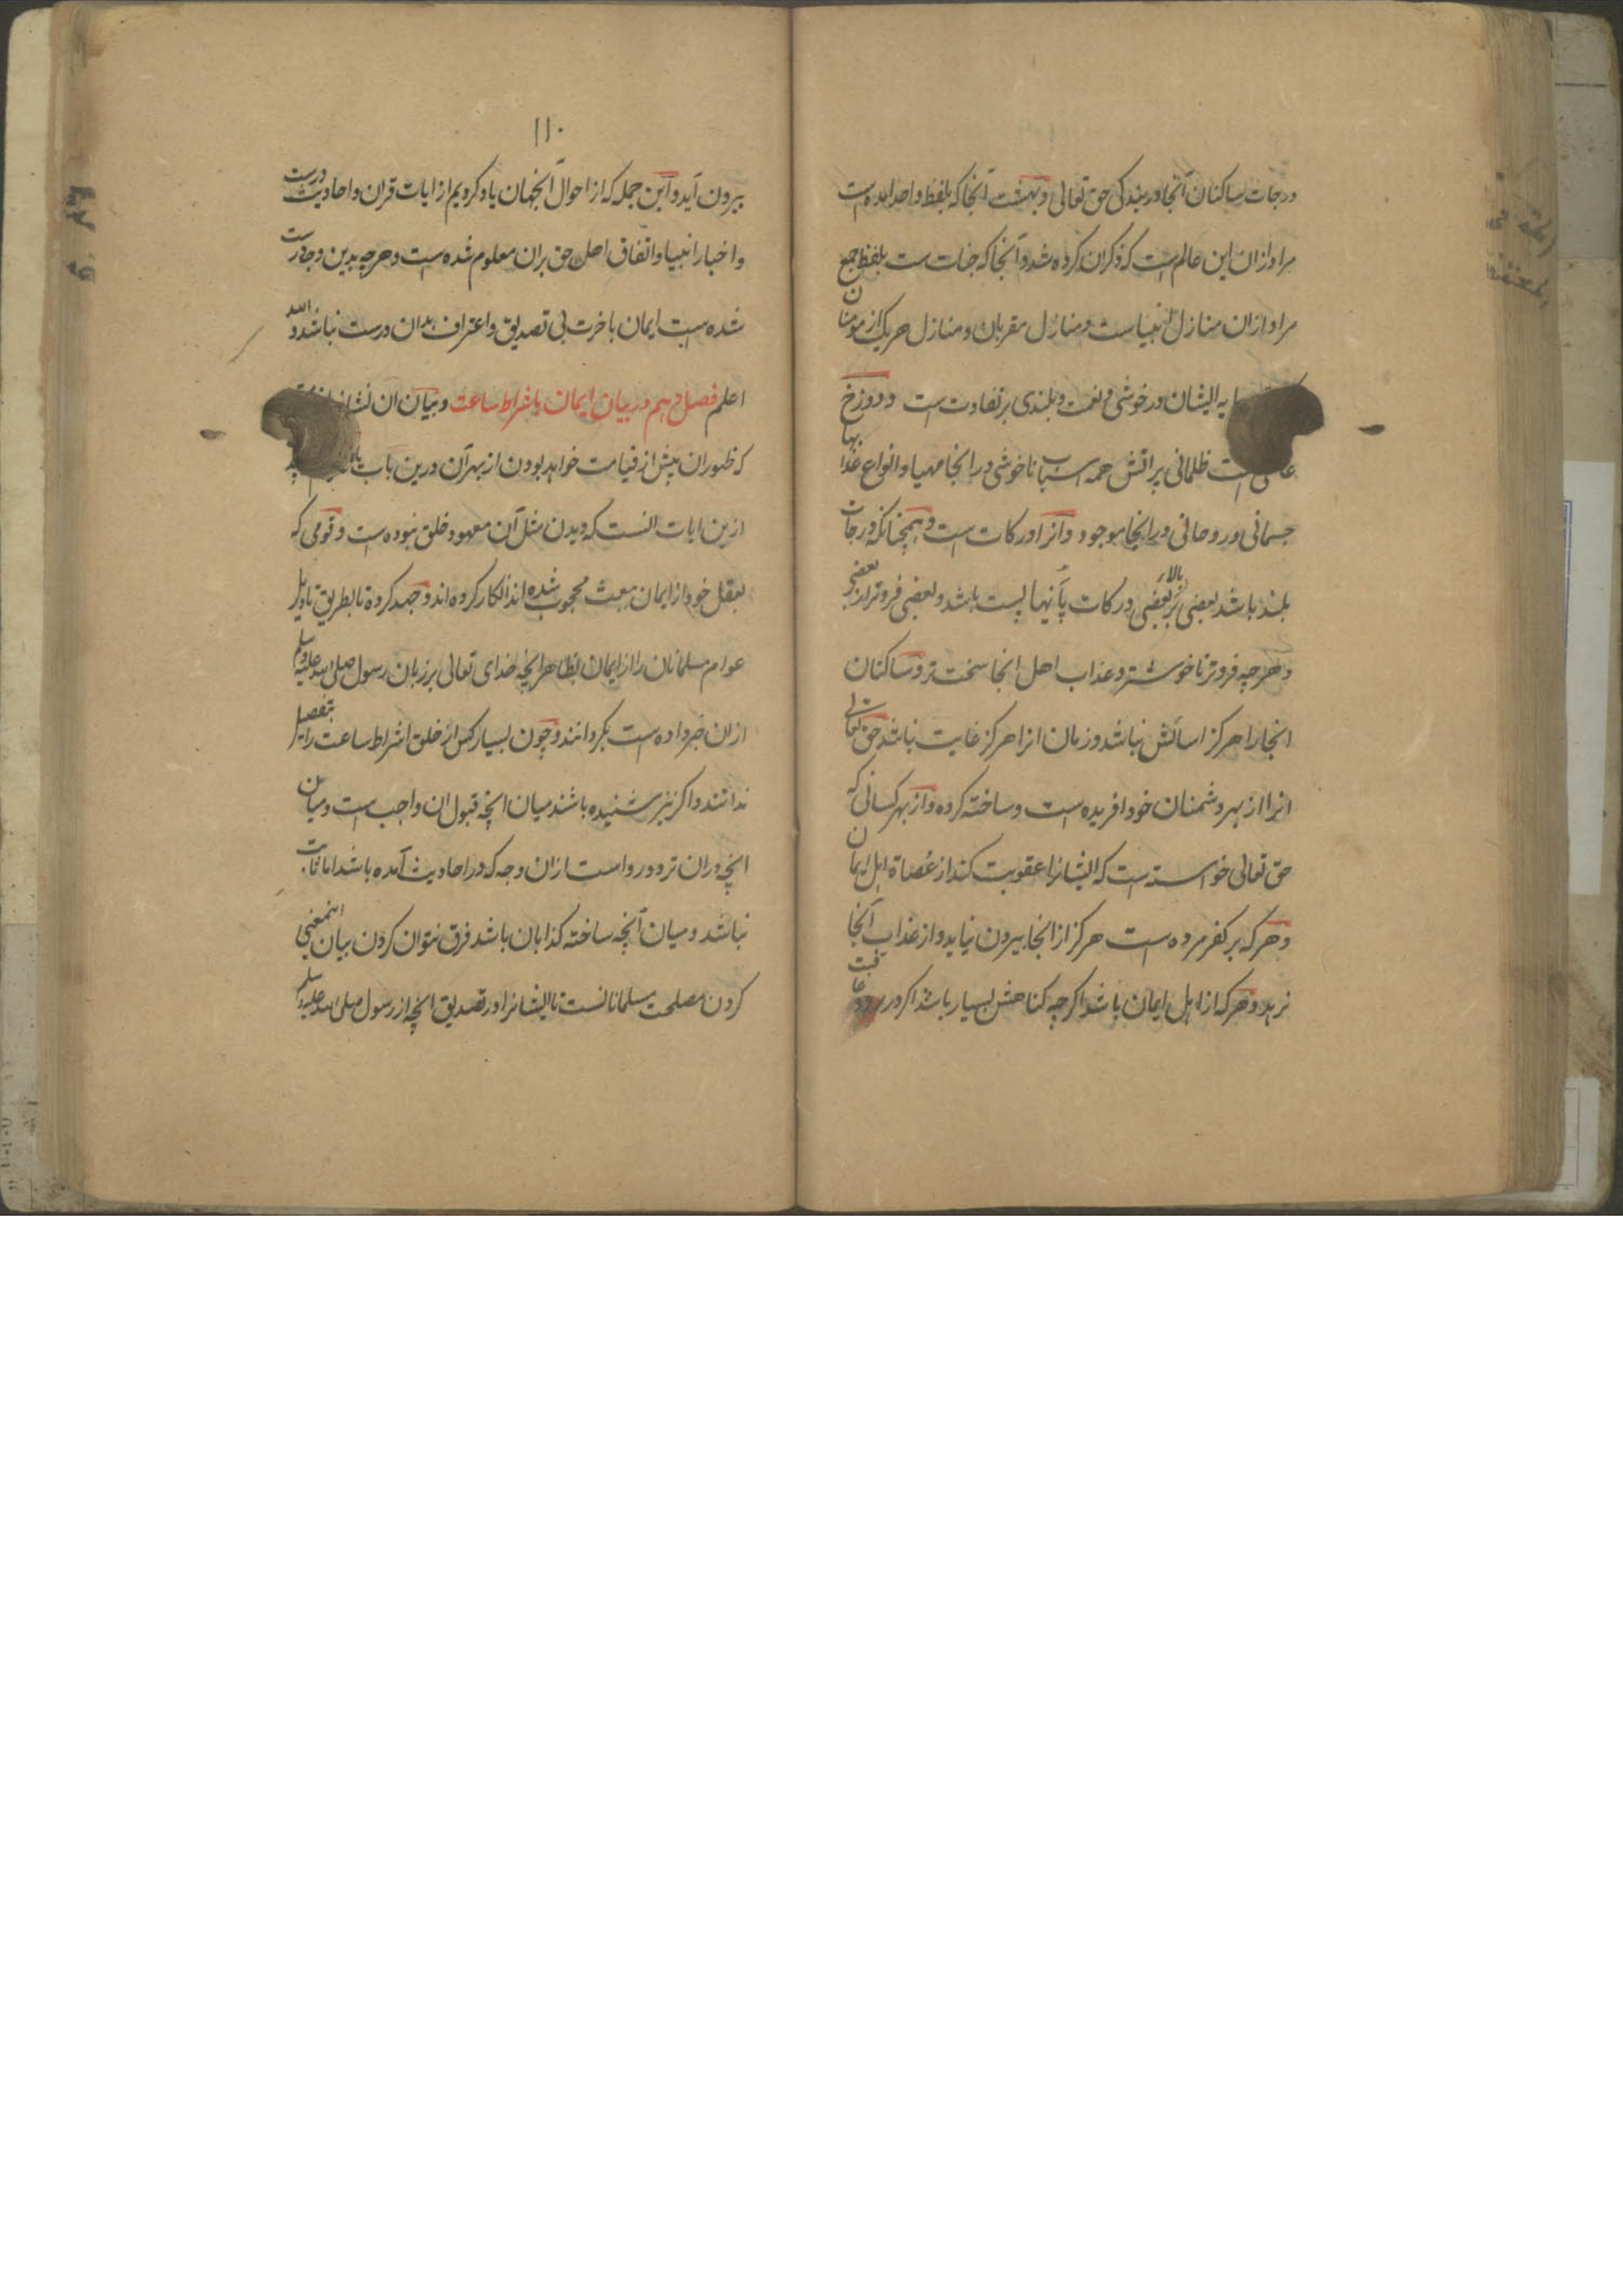 درجات ساکنان آنجا در بندکی حق تعالی و بهشت آنجا که بلفظ واحد امده است
مراد ازان این عالم است که ذکر ان کرده شد و آنجا که جنات ست بلفظ جمع
مراد ازان منازل انبیاست و منازل مقربان و منازل هریک از مومنان
ایشان در خوشی و نعمت و بلندی بر تفاوت ست و دوزخ
عالمی است ظلمانی پر اتش همه اسباب ناخوشی در انجا مهیا و انواع عذابها
جسمانی و روحانی در انجا موجود و آنرا درکات ست و همچنانکه درجات
بلند باشد بعضی بالاء بر بعضی درکات پآنها پست باشد و بعضی فروتر از بعضی
و هر چه فروتر ناخوشتر و عذاب اهل انجا سخت تر و ساکنان
انجا را هرکز اسائش نباشد و زمان انرا هرکز غایت نباشد حق تعالی
انرا از بهر دشمنان خود افریده است و ساخته کرده و از بهر کسانی که
حق تعالی خواسته است که ایشانرا عقوبت کند از عُصاة اهل ایمان
و هر که بر کفر مرده است هرکز از انجا بیرون نیاید و از عذاب آنجا
نرهد و هر که از اهل ایمان باشد اکرچه کناهش بسیار باشد اکر در رود عاقبت
۱۱۰
بیرون آید و این جمله که از احوال آنجهان یاد کردیم از ایات قران و احادیث درست
و اخبار انبیا و اتفاق اهل حق بران معلوم شده است و هر چه بدین وجه درست
شده است ایمان باخرت بی تصدیق و اعتراف بدان درست نباشد و الله
اعلم فصل دهم در بیان ایمان باشراط ساعت و بیان ان
که ظهور ان پیش از قیامت خواهد بودن از بهر آن درین باب
ازین ایات انست که دیدن مثل آن معهود خلق نبوده است و قومی که
بعقل خود از ایمان ببعث محجوب شده اند انکار کرده اند و جهد کرده تا بطریق تاویل
عوام مسلمانان را از ایمان بظاهر انچه خدای تعالی بر زبان رسول صلی الله علیه وسلم
ازان خبر داده است بکردانند و چون بسیار کس از خلق اشراط ساعت را بتفصیل
ندانند و اکر نیز شنیده باشند میان انچه قبول ان واجب است و میان
انچه دران تردد رواست ازان وجه که در احادیث آمده باشد اما ثابت
نباشد و میان آنچه ساخته کذابان باشد فرق نتوان کردن بیان اینمعنی
کردن مصلحت مسلمانانست تا ایشانرا در تصدیق انچه از رسول صلی الله علیه وسلم